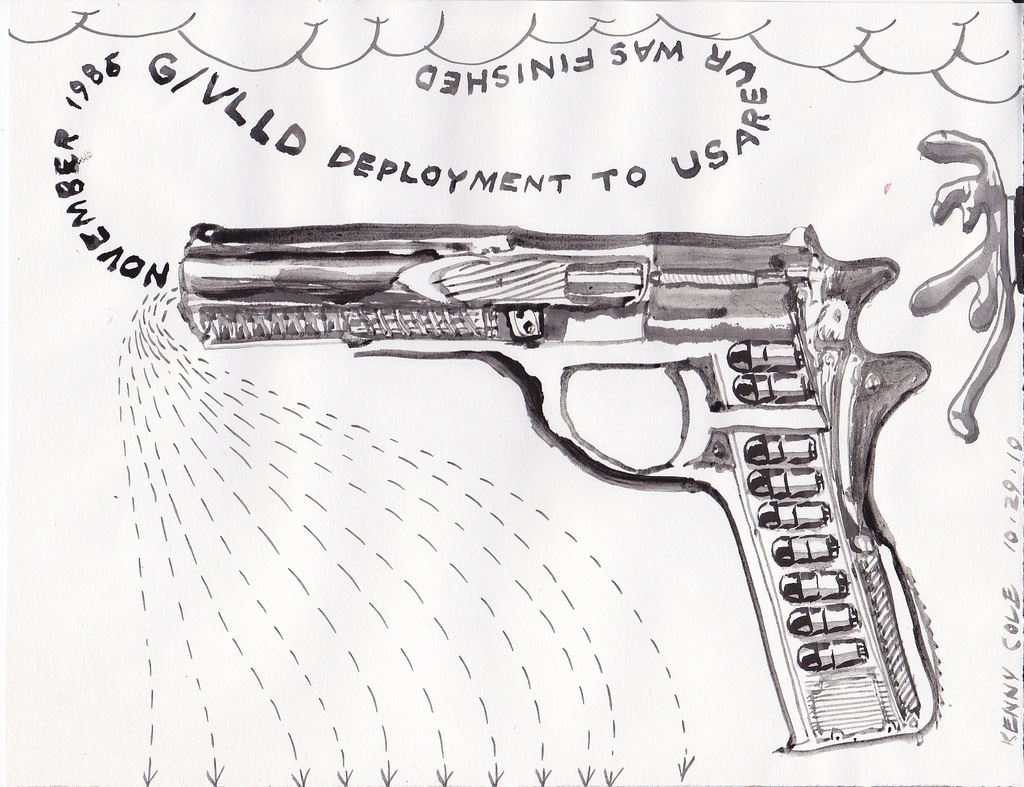 NOVEMBER 1986 G/VLLD DEPLOYMENT TO USAREUR WAS FINISHED
KENNY COLE 10.29.10